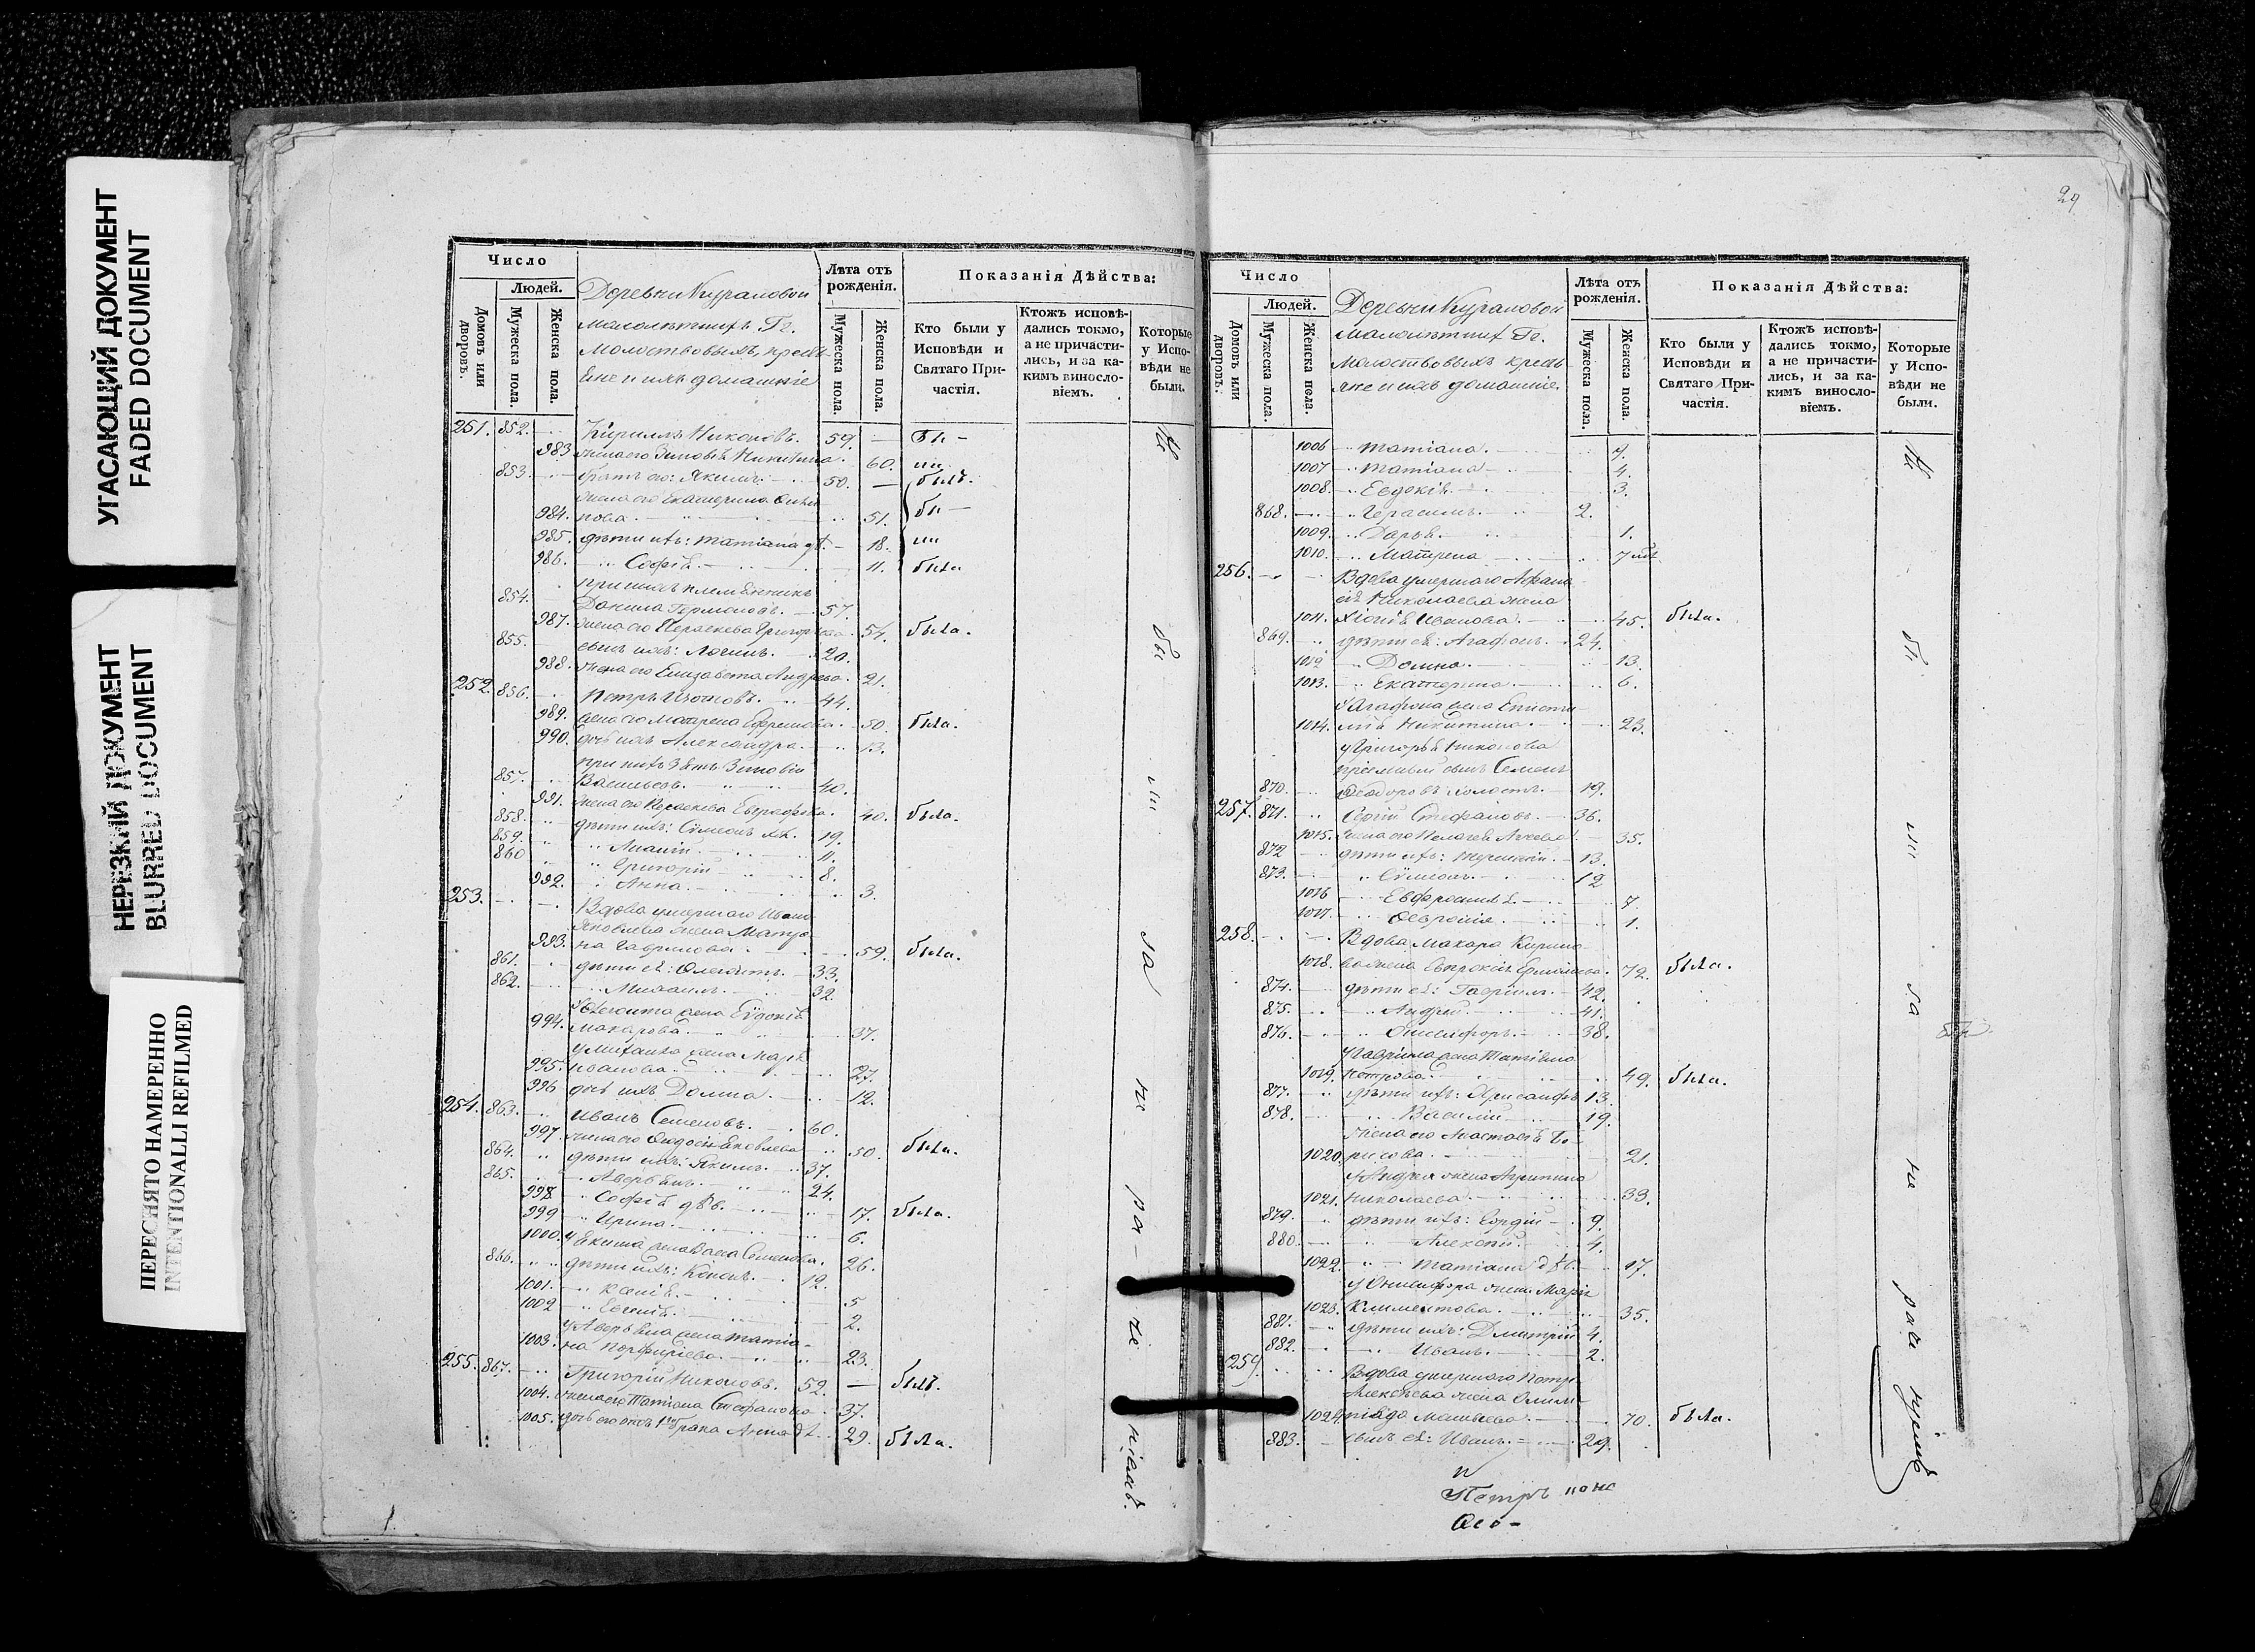 УГАСАЮЩИЙ ДОКУМЕНТ
FADED DOCUMENT
НЕРЕЗКИЙ ДОКУМЕНТ
BLURRED DOCUMENT
ПЕРЕСНЯТО НАМЕРЕННО
INTENTIONALLI REFILMED
Число
Людей.
Домовъ или дворовъ.
Мужеска пола.
Женска пола.
Деревни Кураловой
малолѣтнихъ Гг.
Молоствовыхъ, кресть-
яне и ихъ домашніе
Лѣта отъ рожденія.
Мужеска пола.
Женска пола.
Показанія Дѣйства:
Кто были у Исповѣди и Святаго Причастія.
Ктожъ исповѣдались токмо, а не причастились, и за какимъ винословіемъ.
Которые у Исповѣди не были.
251. 852. Кириллъ Никоновъ. 59.
983 жена его Зиновія Никитина. 60.
853. братъ его: Якимъ. 50. былъ.
жена его Екатерина
984. 51.
985. дѣти ихъ: Татіана 18.
986. Софія 11. была
при нихъ племянникъ
854. Данила 57.
987. жена его Параскева Григорьева 54. была.
855. сынъ ихъ: Логинъ 20.
988. жена его Елизавета Андреева 21.
252. 856. Петръ 44.
989. жена его Матрена Ефремова 50. была.
990. дочь ихъ Александра 13.
при нихъ зять Зиновій
857. Васильевъ. 40.
991. жена его Параскева Евграфова. 40. была.
858. дѣти ихъ: Сѵмеонъ 19.
859. 11.
860 Григорій 8.
992. Анна. 3.
253. Вдова умершаго Ивана
Яковлева жена Матро-
993. на Гаврилова 59. была.
861. дѣти ея: 33.
862. Михаилъ. 32.
жена Евдокія
994. Макарова. 37.
у Михаила жена Марья
995. Иванова. 27.
996 дочь ихъ Домна. 12.
254. 863. Иванъ Семеновъ. 60.
997. жена его Яковлева 50. была.
864. дѣти ихъ: Якимъ. 37.
865. Аверьянъ. 24.
998 Софія дѣв. 17. была.
999 Ирина. 6.
1000. у Екима жена Семенова. 26.
866. дѣти ихъ: Кононъ. 12.
1001. 5
1002 Евгенія. 2.
у Аверьяна жена Татіа-
1003. на Порфиріева. 23.
255. 867. Григорій Никоновъ. 52. былъ.
1004. жена его Татіана Стефанова. 37.
1005. дочь его отъ 1го брака Анна 29. была.
29
Число
Людей.
Домовъ или дворовъ.
Мужеска пола.
Женска пола.
Деревни Кураловой
малолѣтнихъ Гг.
Молоствовыхъ кресть-
яне и ихъ домашніе.
Лѣта отъ рожденія.
Мужеска пола.
Женска пола.
Показанія Дѣйства:
Кто были у Исповѣди и Святаго Причастія.
Ктожъ исповѣдались токмо, а не причастились, и за какимъ винословіемъ.
Которые у Исповѣди не были.
1006 Татіана.
1007 Татіана 4.
1008. Евдокія 3.
868. Герасимъ. 2.
1009. Дарья. 1.
1010. Матрена
256. Вдова умершаго Афана-
сія Николаева жена
1011. Хіонія Иванова. 45. была.
869. дѣти ея: Агафонъ. 24.
1012 Домна. 13.
1013. Екатерина. 6.
у Агафона жена
1014. Никитина. 23.
у Григорья Никонова
пріемный сынъ Семенъ
870. Ѳеодоровъ холостъ. 19.
257. 871. Сергій Стефановъ. 36.
1015. жена его Пелагея 35.
872 дѣти ихъ: 13.
873. Сѵмеонъ. 12
1016 Евфросинія. 7.
1017. Ѳевронія. 1.
258. Вдова Макара Кирило-
1018. ва жена Ермолаева. 72. была.
874. дѣти ея: Гаврилъ. 42.
875. Андрей. 41.
876. Онисифоръ. 38.
у Гаврила жена Татіана
1019. Петрова. 49. была.
877. дѣти ихъ: Хрисанфъ 13.
878. Василій 19.
жена его Анастасія Бо-
1020. рисова. 21.
у Андрея жена
1021. Николаева. 33.
879. дѣти ихъ: 9.
880. Алексѣй. 4.
1022. Татіана дѣв. 17.
у Онисифора жена Марія
1023. Климентова. 35.
881. дѣти ихъ: Дмитрій 4.
882. Иванъ. 2.
259. Вдова умершаго Петра
Алексѣева жена Олим-
1024 піада Матвѣева. 70. была.
883. сынъ ея: Иванъ. 29.
Не бы ли за не ра че ніемъ.
Не бы ли за не раченіемъ
Петръ поно